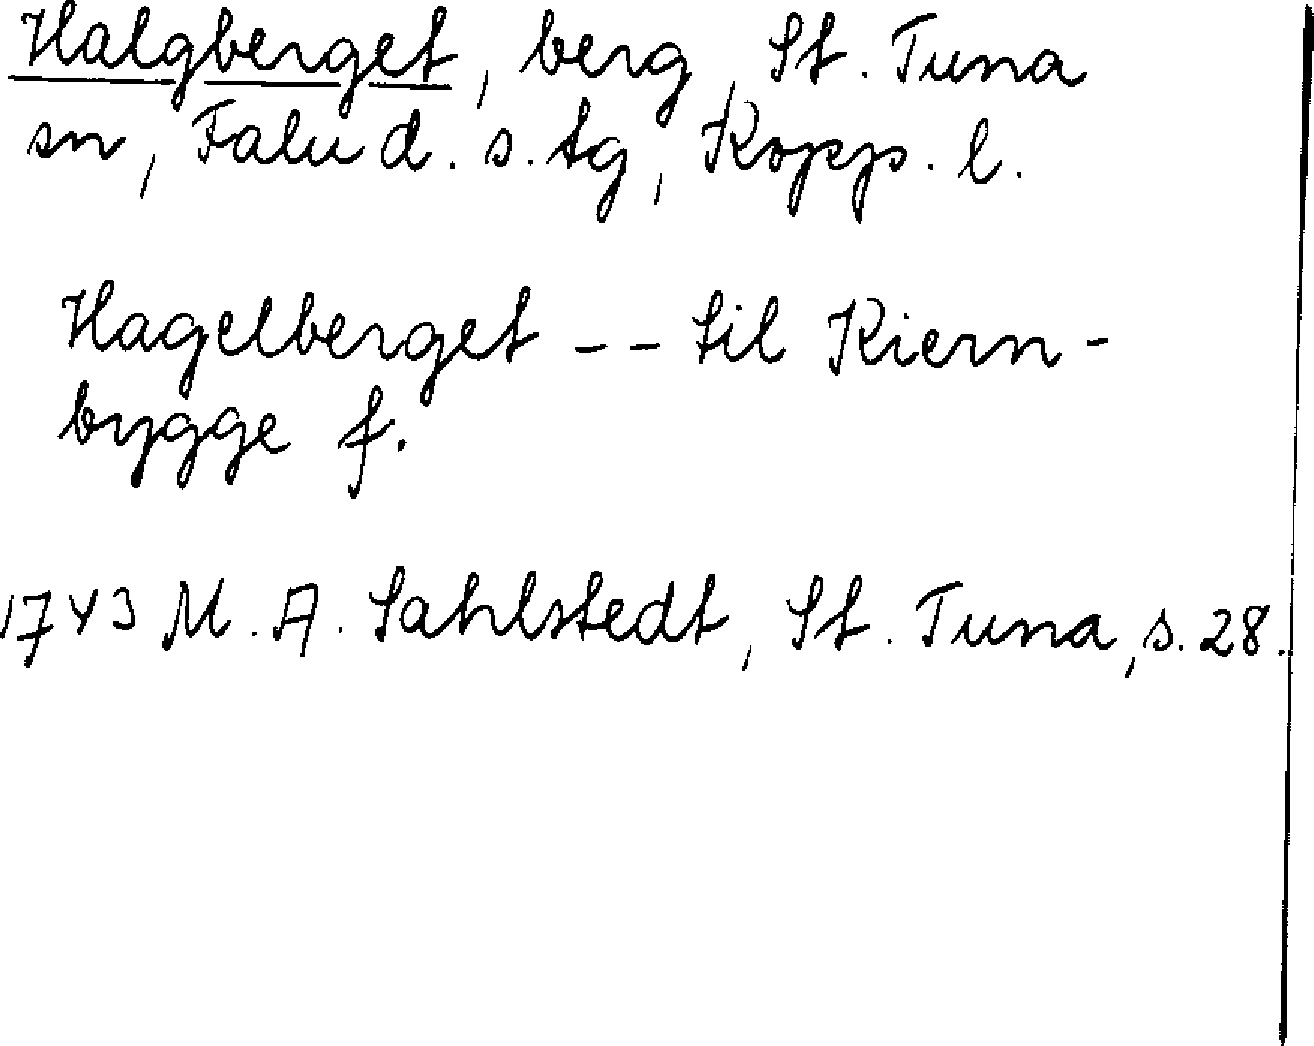 Halgberget, berg, St. Tuna
sn, Falu d. s. tg, Kopp. l.
Hagelberget -- til Kiern-
bygge f.
1743 M. A. Sahlstedt, St. Tuna, s. 28.